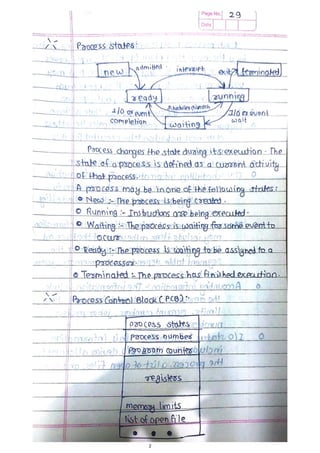 Page No. 29
Date
Process states:
new
admitted
interrupt
exit
terminated
ready
running
scheduler dispatch
I/O or event completion
waiting
I/O or event wait
Process changes the state during its execution. The
state of a process is defined as a current activity
of that process.
A process may be in one of the following states:
New :- The process is being created.
Running :- Instructions are being executed.
Waiting :- The process is waiting for some event to
occur
Ready :- The process is waiting to be assigned to a
processor
Terminated :- The process has finished execution.
Process Control Block (PCB) :-
process states
process number
program counter
registers
memory limits
list of open file
2